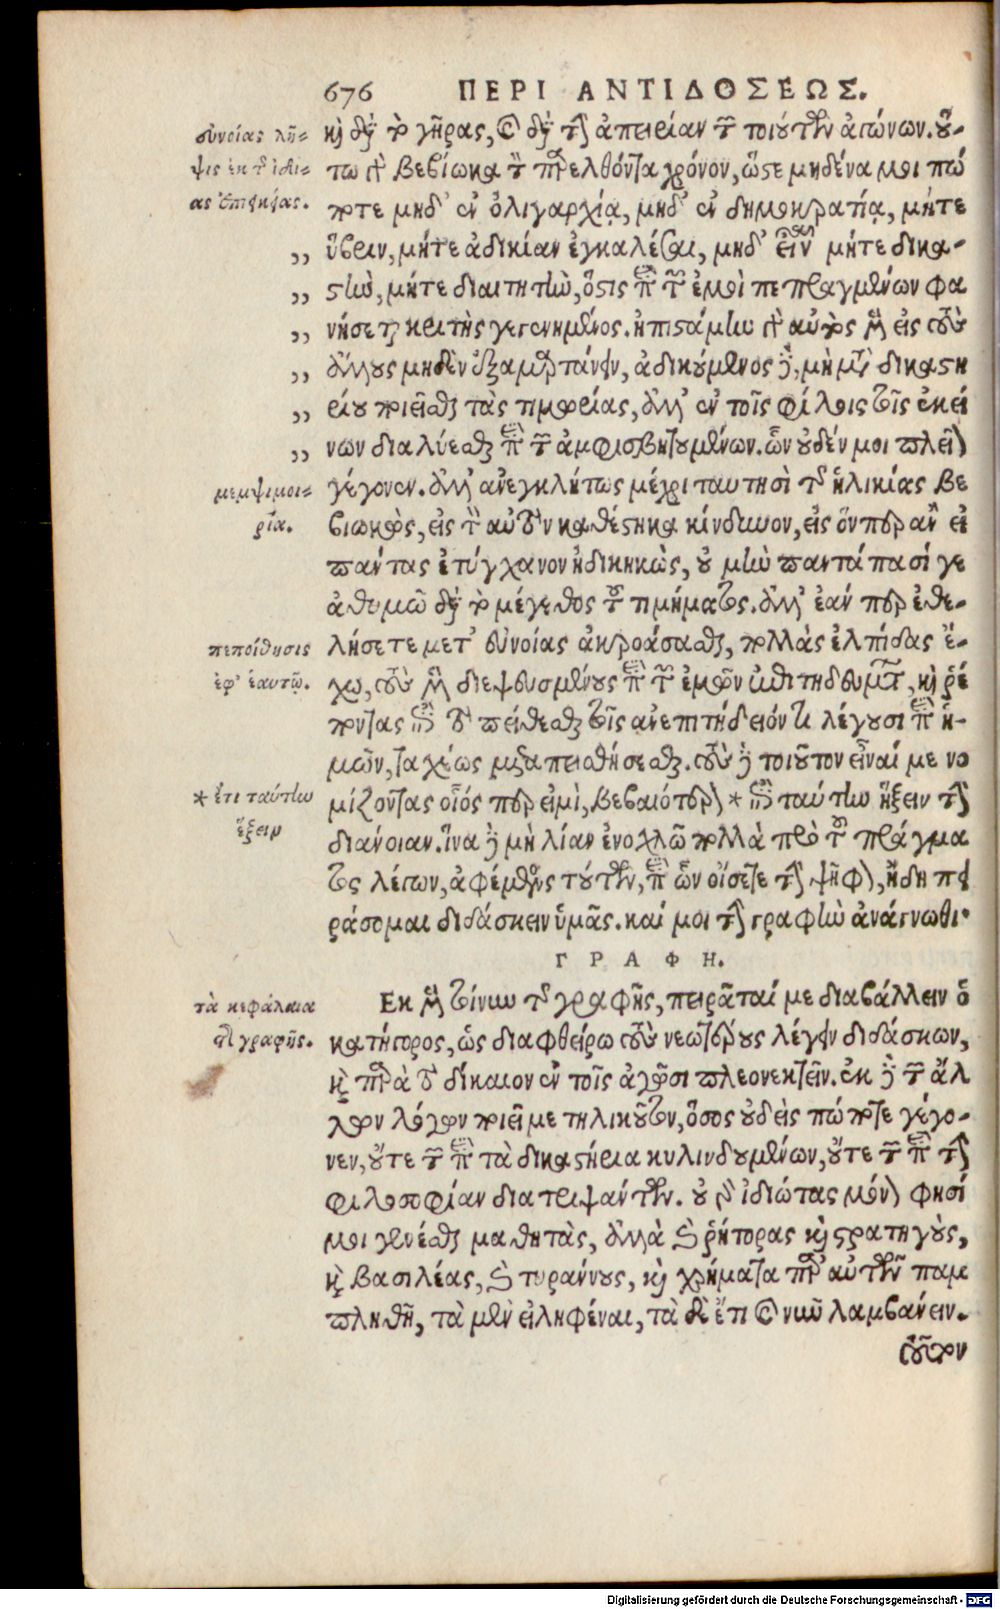 676 ΠΕΡΙ ΑΝΤΙΔΟΣΕΩΣ.
καὶ διὰ τὸ γῆρας, καὶ διὰ τὴν ἀπειρίαν τῶν τοιούτων ἀγώνων. οὕ-
τω γὰρ βεβίωκα τὸν παρελθόντα χρόνον, ὥστε μηδένα μοι πώ
ποτε μηδ' ἐν ὀλιγαρχίᾳ, μηδ' ἐν δημοκρατίᾳ, μήτε
ὕβριν, μήτε ἀδικίαν ἐγκαλέσαι, μηδ' εἶναι μήτε δικα-
στὴν, μήτε διαιτητὴν, ὅστις περὶ τῶν ἐμοὶ πεπραγμένων φα
νήσεται κριτὴς γεγενημένος. ἠπιστάμην γὰρ αὐτὸς μὲν εἰς τοὺς
ἄλλους μηδὲν ἐξαμαρτάνειν, ἀδικούμενος δὲ, μὴ μετὰ δικαστη
ρίου ποιεῖσθαι τὰς τιμωρίας, ἀλλ' ἐν τοῖς φίλοις τοῖς ἐκεί
νων διαλύεσθαι περὶ τῶν ἀμφισβητουμένων. ὧν οὐδέν μοι πλεῖον
γέγονεν. ἀλλ' ἀνεγκλήτως μέχρι ταυτησὶ τῆς ἡλικίας βε
βιωκὼς, εἰς τὸν αὐτὸν καθέστηκα κίνδυνον, εἰς ὅνπερ ἂν εἰ
πάντας ἐτύγχανον ἠδικηκὼς, οὐ μὴν παντάπασί γε
ἀθυμῶ διὰ τὸ μέγεθος τοῦ τιμήματος. ἀλλ' ἐάν περ ἐθε-
λήσετε μετ' εὐνοίας ἀκροάσασθαι, πολλὰς ἐλπίδας ἔ-
χω, τοὺς μὲν διεψευσμένους περὶ τῶν ἐμῶν ἐπιτηδευμάτων, καὶ
πεισθέντας ὑπὸ τοῦ πείθεσθαι τοῖς ἀνεπιτήδειόν τι λέγουσι περὶ ἡ-
μῶν, ταχέως μεταπεισθήσεσθαι. τοὺς δὲ τοιοῦτον εἶναί με νο
μίζοντας οἷός περ εἰμὶ, βεβαιότερον * ταύτην ἥξειν τὴν
διάνοιαν. ἵνα δὲ μὴ λίαν ἐνοχλῶ πολλὰ πρὸ τοῦ πράγμα
τος λέγων, ἀφέμενος τούτων, περὶ ὧν οἴσετε τὴν ψῆφον, ἤδη πει
ράσομαι διδάσκειν ὑμᾶς. καί μοι τὴν γραφὴν ἀνάγνωθι.
ΓΡΑΦΗ.
Ἐκ μὲν τοίνυν τῆς γραφῆς, πειρᾶταί με διαβάλλειν ὁ
κατήγορος, ὡς διαφθείρω τοὺς νεωτέρους λέγειν διδάσκων,
καὶ παρὰ τὸ δίκαιον ἐν τοῖς ἀγῶσι πλεονεκτεῖν. ἐκ δὲ τῶν ἄλ
λων λόγων ποιεῖ με τηλικοῦτον, ὅσος οὐδεὶς πώποτε γέγο-
νεν, οὔτε τῶν περὶ τὰ δικαστήρια κυλινδουμένων, οὔτε τῶν περὶ τὴν
φιλοσοφίαν διατριψάντων. οὐ γὰρ ἰδιώτας μόνον φησί
μοι γενέσθαι μαθητὰς, ἀλλὰ καὶ ῥήτορας καὶ στρατηγοὺς,
καὶ βασιλέας, καὶ τυράννους, καὶ χρήματα παρ' αὐτῶν παμ
πληθῆ, τὰ μὲν εἰληφέναι, τὰ δὲ ἔτι καὶ νῦν λαμβάνειν.
τοῦτον
εὐνοίας λῆ-
ψις ἐκ τῆς ἰδί-
ας ἐπιεικείας.
μεμψιμοι-
ρία.
πεποίθησις
ἐφ' ἑαυτῷ.
* ἔτι ταύτην
ἕξειν
τὰ κεφάλαια
τῆς γραφῆς.
Digitalisierung gefördert durch die Deutsche Forschungsgemeinschaft - DFG